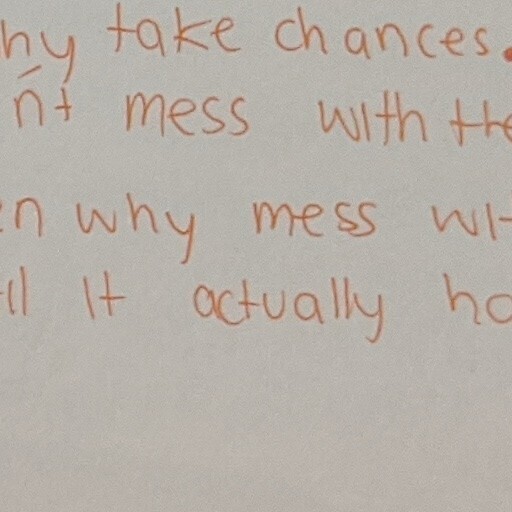 hy take chances.
n't mess with the
en why mess wi
ll it actually ho